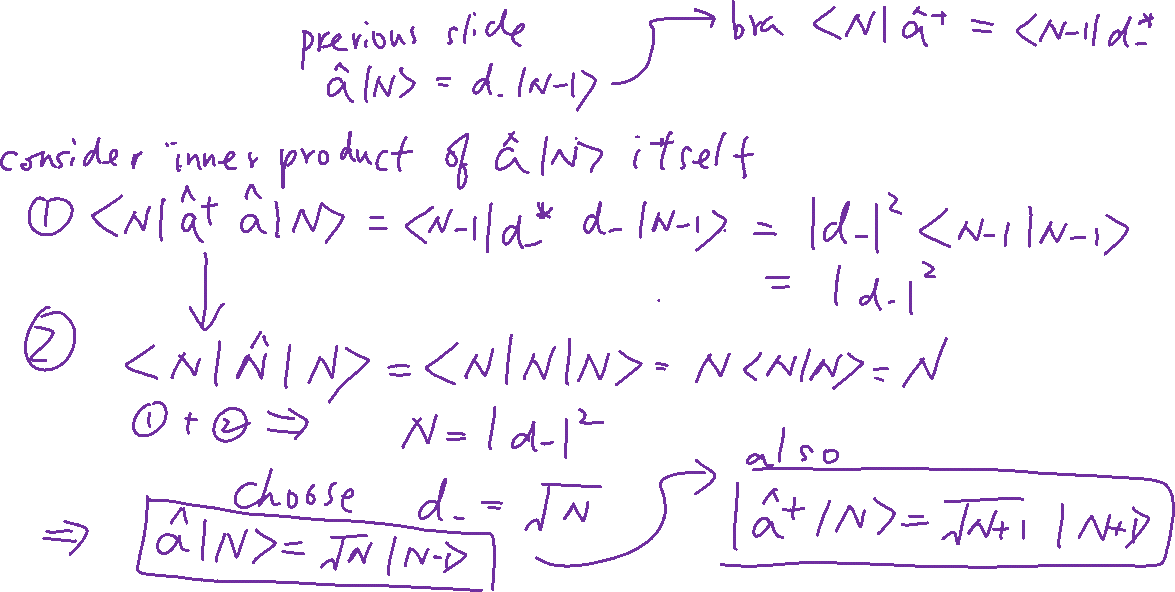 previous slide
bra <N| â⁺ = <N-1| d₋*
â |N> = d₋ |N-1>
consider inner product of â |N> itself
① <N| â⁺ â |N> = <N-1| d₋* d₋ |N-1> = |d₋|² <N-1 | N-1>
= | d₋ |²
② <N| N̂ | N> = <N|N|N> = N <N|N> = N
① + ② ⇒ N = | d₋ |²
also
choose d₋ = √N
⇒ â |N> = √N | N-1>
| â⁺ |N> = √N+1 | N+1>